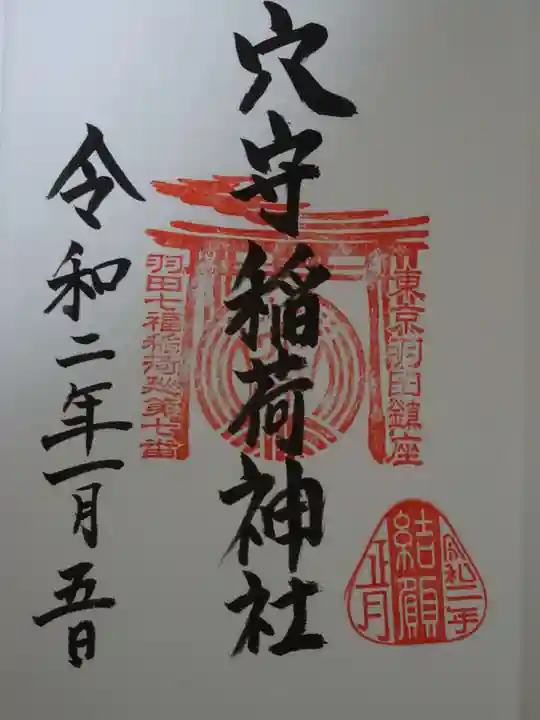 東京羽田鎮座
穴守稲荷神社
羽田七福稲荷巡第七番
令和二年一月五日
令和二年
結願
正月